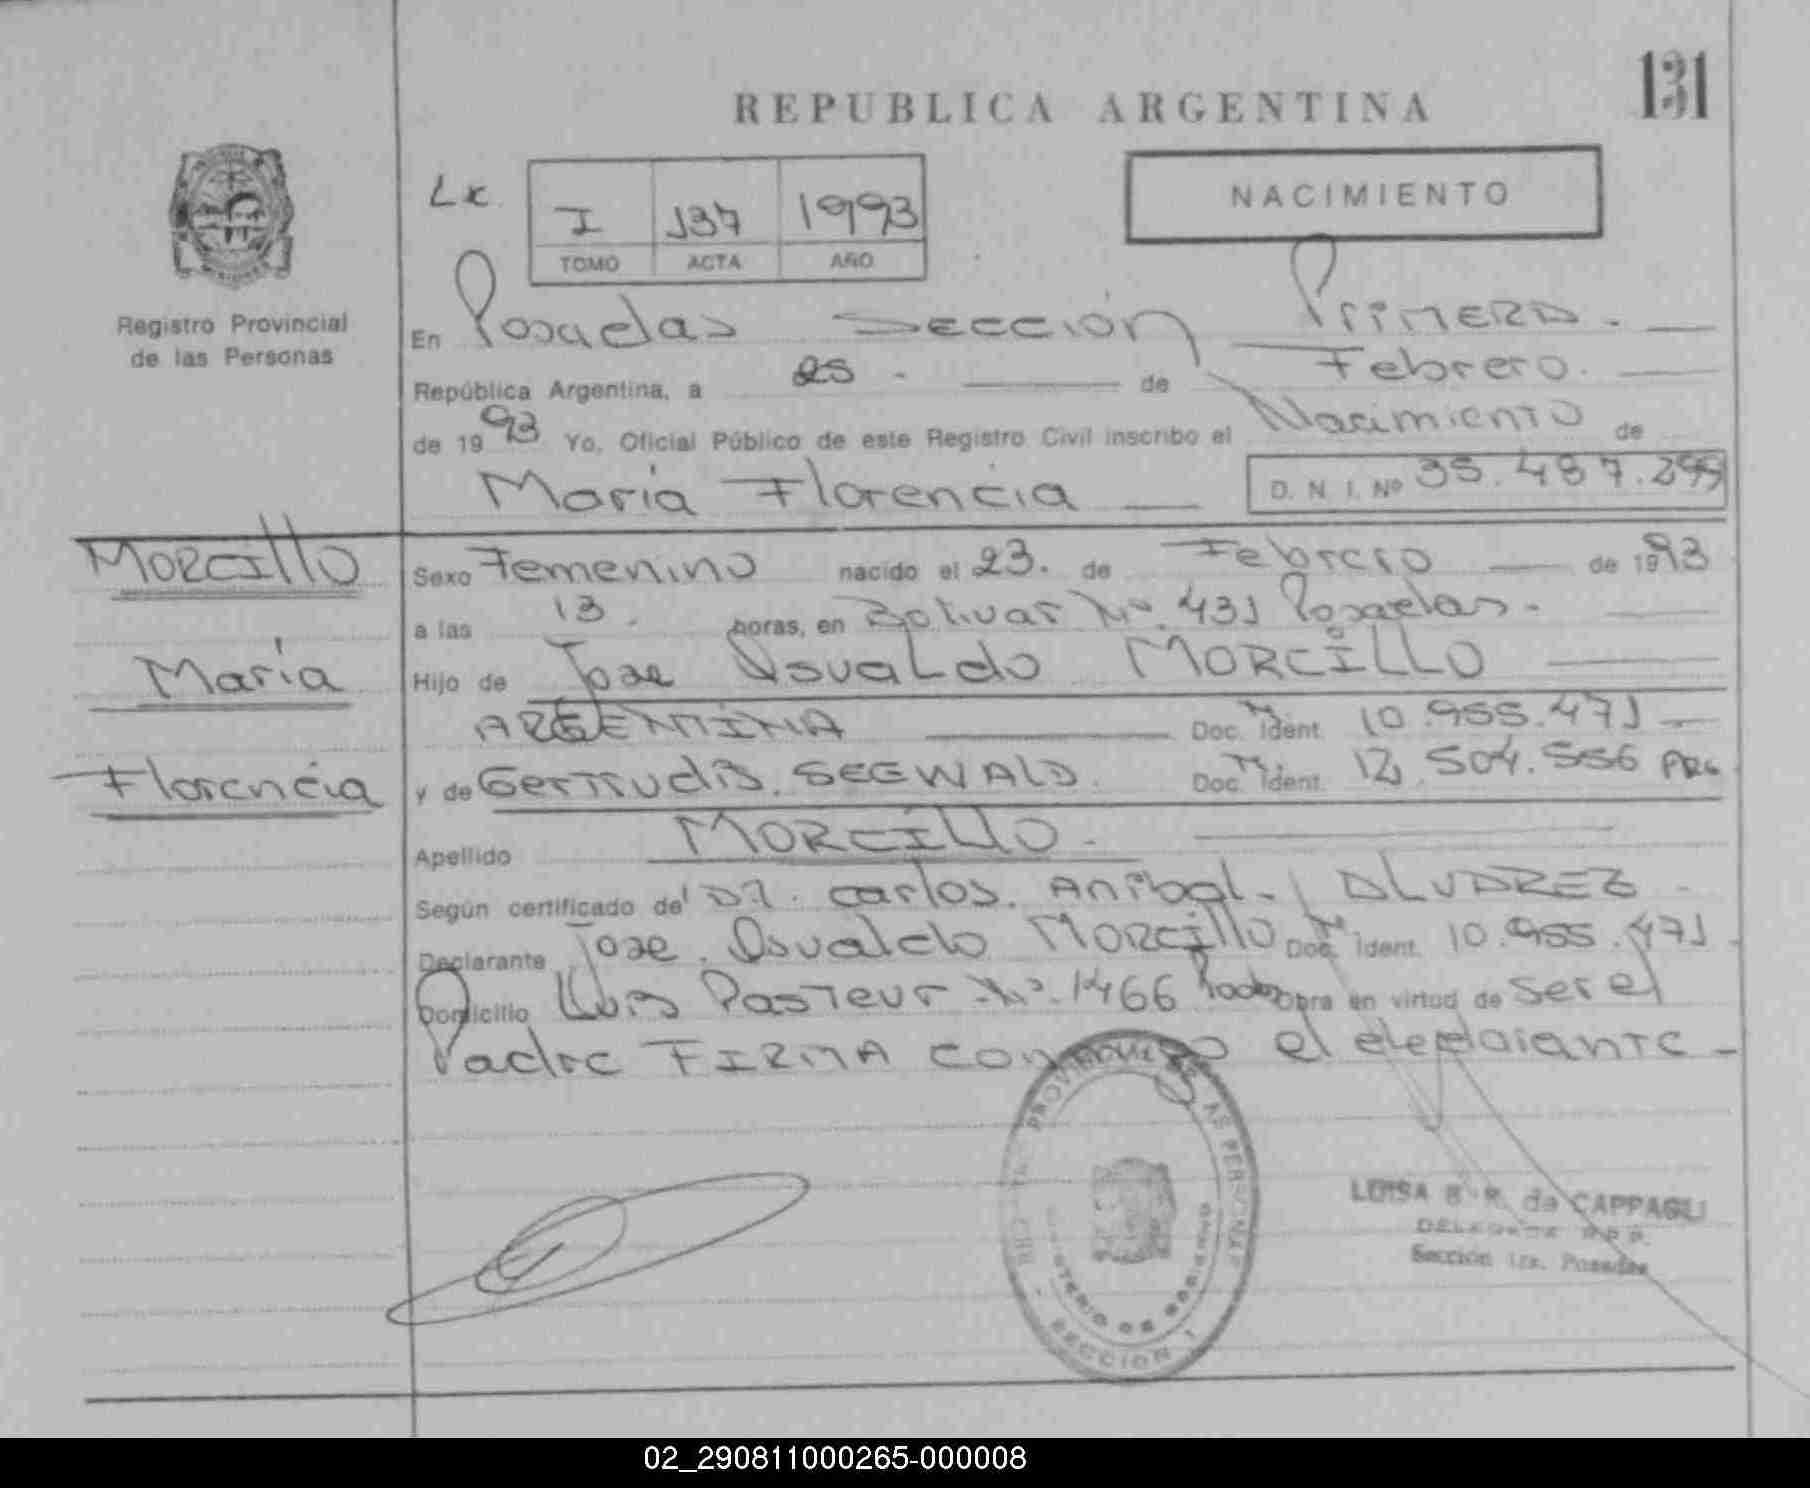 131
REPUBLICA ARGENTINA
NACIMIENTO
I 137 1993
TOMO ACTA AÑO
Registro Provincial
de las Personas
En Posadas Sección Primera. —
República Argentina, a 25 - — de Febrero. —
de 1993 Yo, Oficial Público de este Registro Civil inscribo el Nacimiento de
María Florencia — D. N. I. Nº
Morcillo
María
Florencia
Sexo Femenino nacido el 23. de Febrero — de 1993
a las 13. horas, en Bolivar Nº. 431 Posadas. —
Hijo de Jose Osvaldo MORCILLO —
ARGENTINA — Doc. Ident. M 10.955.471 —
y de Gertrudis SEEWALD. Doc. Ident. 12.504.556
Apellido MORCILLO. —
Según certificado de Dr. Carlos. Anibal. ALVAREZ -
Declarante Jose. Osvaldo MORCILLO Doc. Ident. M 10.955.471.
Domicilio Luis Pasteur Nº. 1466 obra en virtud de ser el
Padre FIRMA conmigo el declarante -
PROVINCIAL DE LAS PERSONAS
MINISTERIO DE GOBIERNO
SECCION 1
LUISA B. R. de CAPPAGLI
DELEGADA R.P.P.
Sección 1ra. Posadas
02_290811000265-000008